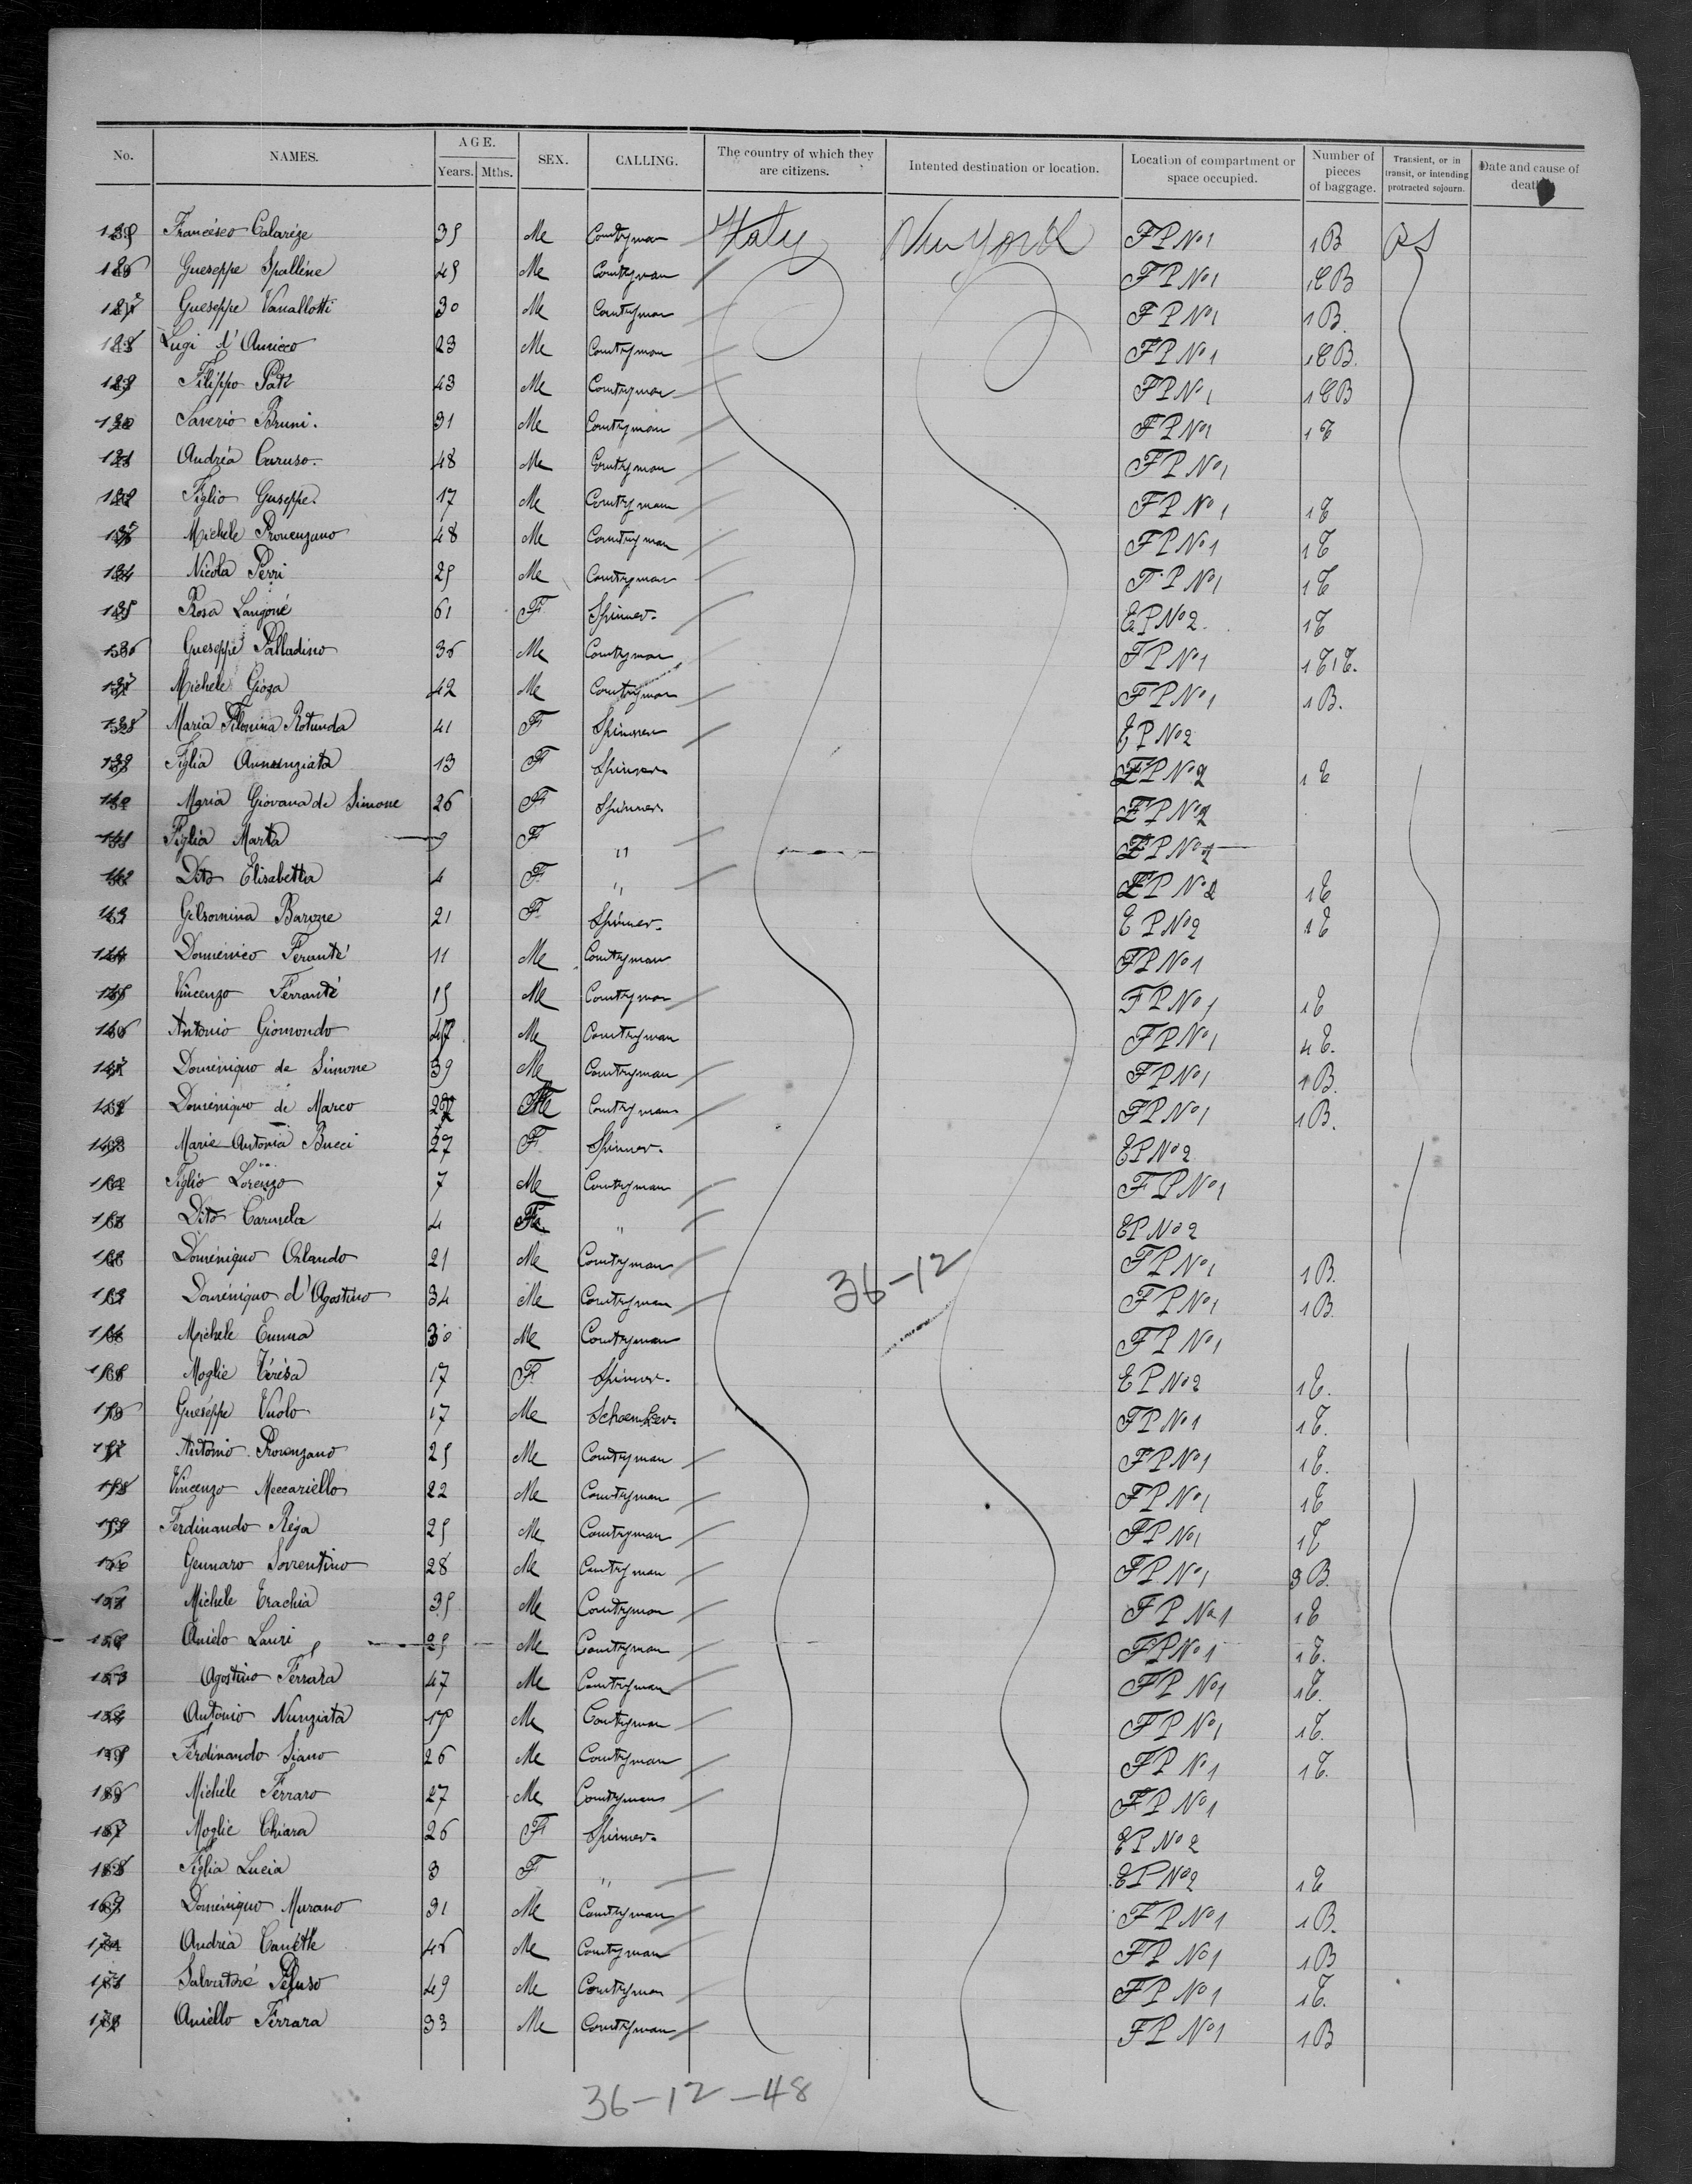 No. NAMES. AGE. Years. Mths. SEX. CALLING. The country of which they are citizens. Intented destination or location. Location of compartment or space occupied. Number of pieces of baggage. Transient, or in transit, or intending protracted sojourn. Date and cause of death
Francesco Calarize 35 Me Countryman Italy New York FP No1 1B PS
126 Gueseppe Spalléne 45 Me Countryman FP No1 1CB
127 Gueseppe Vanallotti 30 Me Countryman FP No1 1B.
128 Luigi d'Amicco 23 Me Countryman FP No1 1CB.
129 Filippo 43 Me Countryman FP No1 1CB
130 Saverio Bruni. 31 Me Countryman FP No1 1C
131 Andréa Caruso. 48 Me Countryman FP No1
132 Figlio Guseppe. 17 Me Countryman FP No1 1C
133 Michele Provenzano 48 Me Countryman FP No1 1C
134 Nicola Perri 25 Me Countryman FP No1 1C
135 Rosa Langoné 61 F Spinner. EP No2. 1C
136 Gueseppe Palladino 36 Me Countryman FP No1 1C1C.
137 Michele Gioza 42 Me Countryman FP No1 1B.
138 Maria Filomina Rotunda 41 F Spinner EP No2
139 Figlia Annunziata 13 F Spinner EP No2 1C
140 Maria Giovana de Simone 26 F Spinner. EP No2
141 Figlia Marta 9 F " EP No2
142 Dito Elisabetta 4 F " EP No2 1C
143 Gelsomina Barone 21 F Spinner. EP No2 1C
144 Domenico Feranté 11 Me Countryman FP No1
145 Vincenzo Ferranté 15 Me Countryman FP No1 1C
146 Antonio Giomondo 47 Me Countryman FP No1 4C.
147 Doménique de Simone 39 Me Countryman FP No1 1B.
Doménique de Marco Me Countryman FP No1 1B.
Marie Antonia Bucci 27 F Spinner. EP No2
Figlio Lorenzo 7 Me Countryman FP No1
Dito Carmela 4 F " EP No2
Doménique Orlando 21 Me Countryman FP No1 1B.
36-12
Doménique d'Agostino 34 Me Countryman FP No1 1B.
Michele Emma 30 Me Countryman FP No1
Moglie Térésa 17 F Spinner. EP No2 1C.
Gueséppe Vuolo 17 Me FP No1 1C.
Antonio Provenzano 25 Me Countryman FP No1 1C.
Vincenzo Meccariello 22 Me Countryman FP No1 1C
Ferdinando Réga 25 Me Countryman FP No1 1C
Gennaro Sorrentino 28 Me Countryman FP No1 3B.
Michele Erachia 35 Me Countryman FP No1 1C
Anielo Lauri 25 Me Countryman FP No1 1C.
Agostino Ferrara 47 Me Countryman FP No1 1C.
Antonio Nunziata Me Countryman FP No1 1C.
Ferdinando Siano 26 Me Countryman FP No1 1C.
Michéle Ferraro 27 Me Countryman FP No1
167 Moglie Chiara 26 F Spinner. EP No2
168 Figlia Lucia 3 F " EP No2 1C
169 Doménique Murano 31 Me Countryman FP No1 1B.
Andréa 46 Me Countryman FP No1 1B
171 Salvatoré Peluso 49 Me Countryman FP No1 1C.
172 Aniello Ferrara 33 Me Countryman FP No1 1B
36-12-48